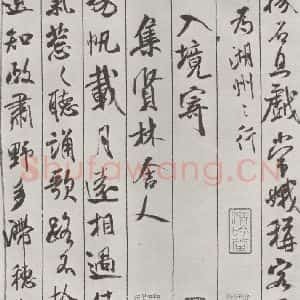 機石且戲常娥稱客
為湖州之行
入境寄
集賢林舍人
揚帆載月遠相過佳
氣蔥々聽誦歌路不拾
遺知政肅野多滯穗
Shufawang.CN